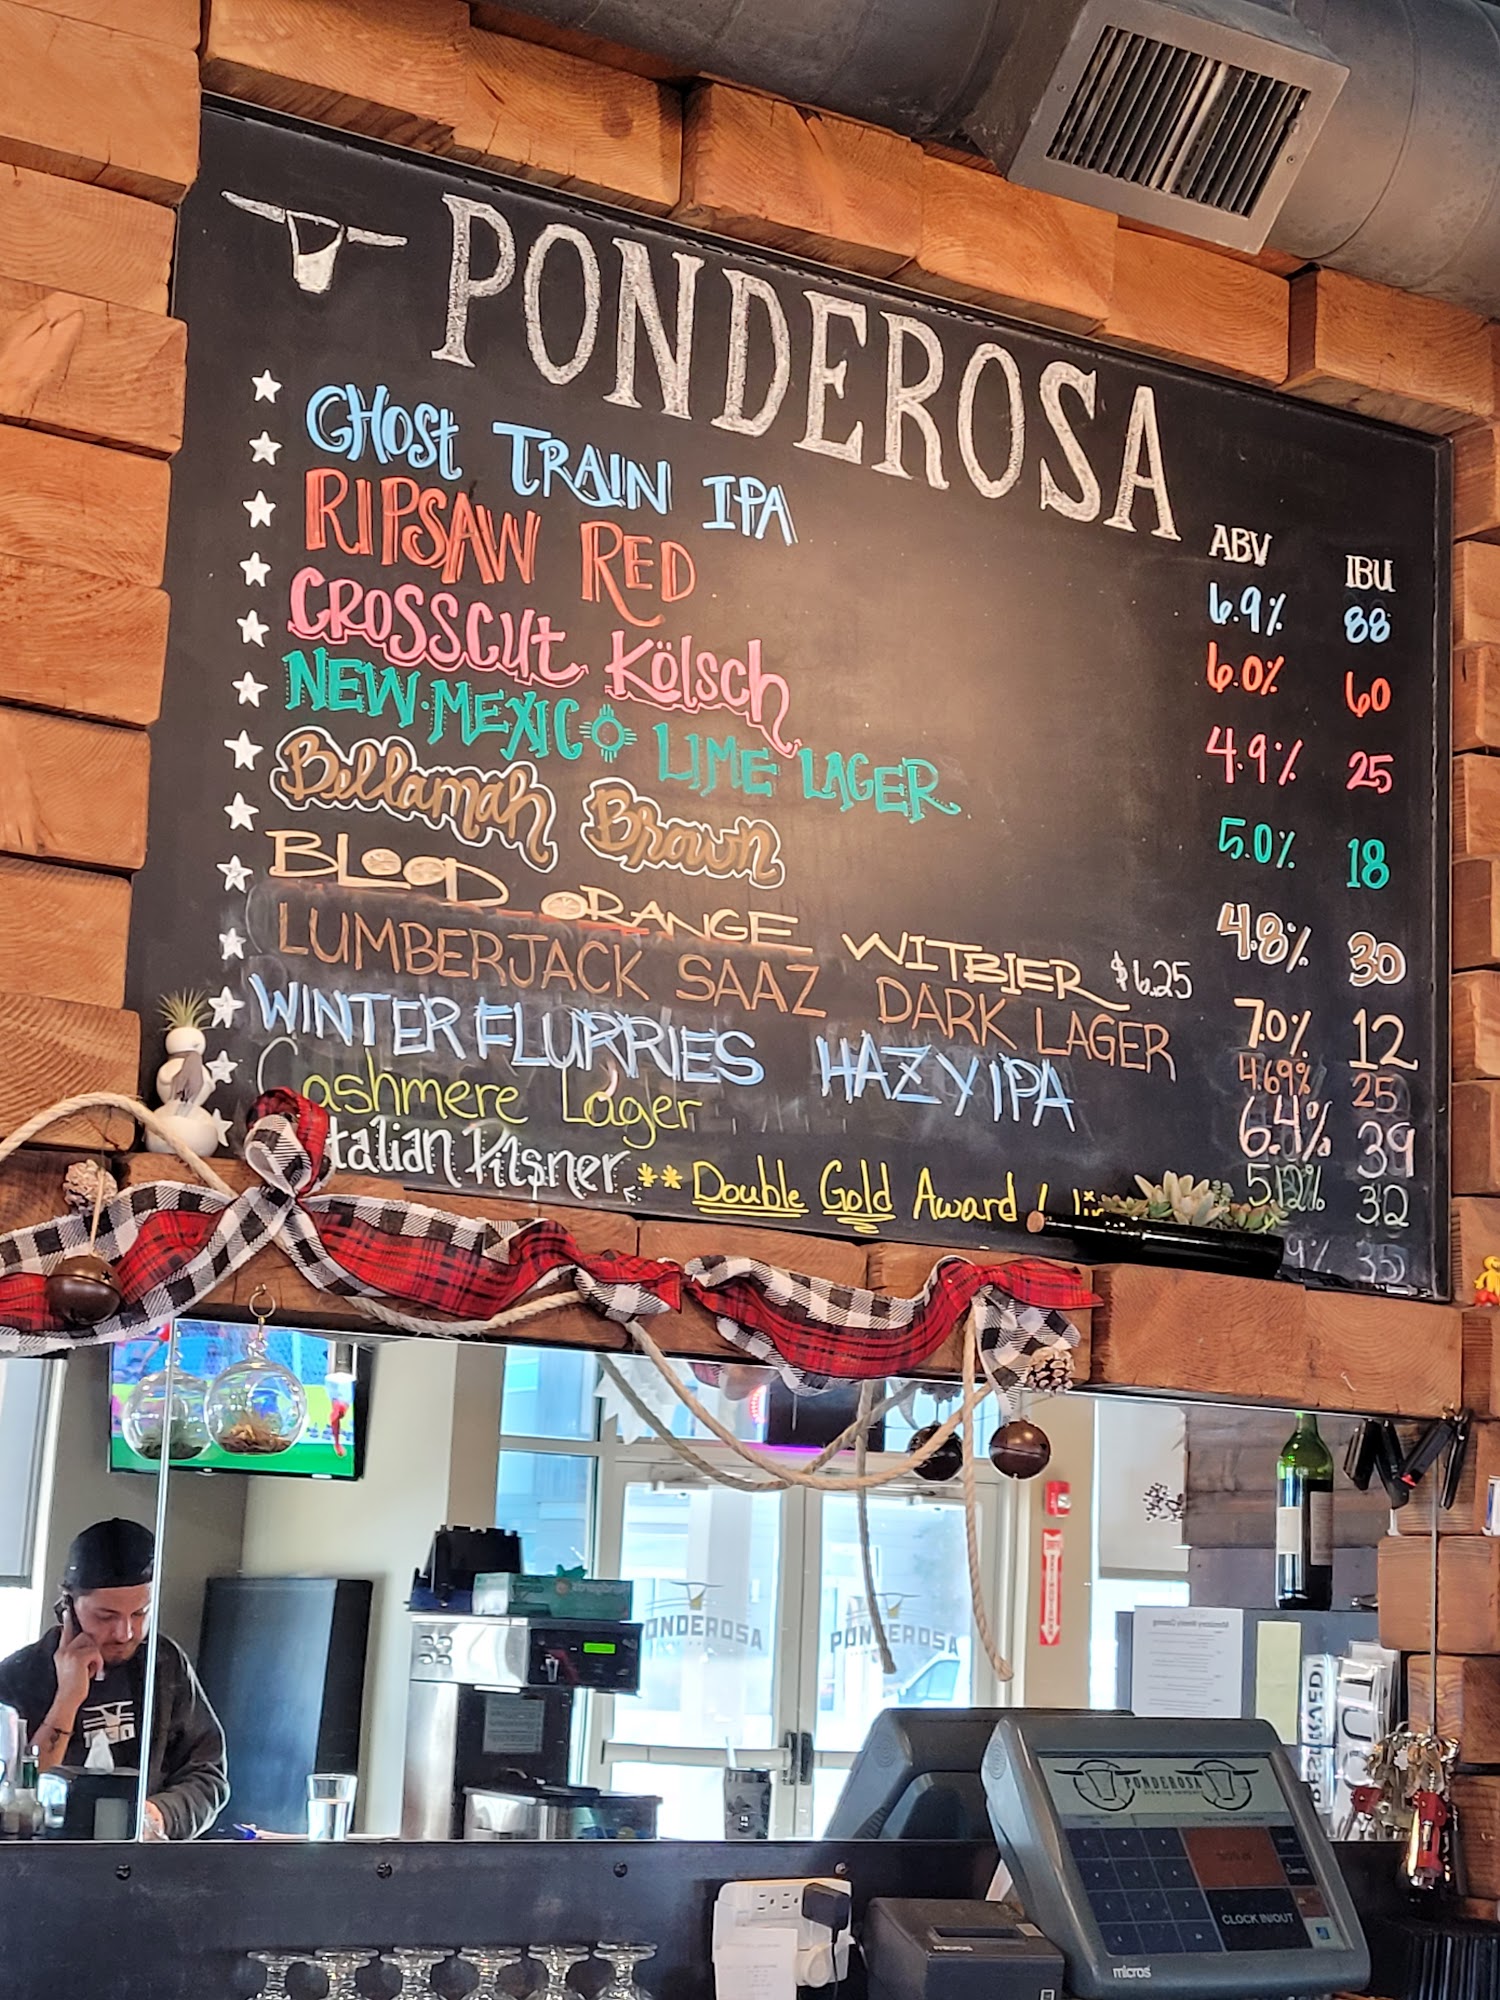 PONDEROSA
ABV IBU
GHOST TRAIN IPA 6.9% 88
RIPSAW RED 6.0% 60
CROSSCUT KÖLSCH 4.9% 25
NEW·MEXICO LIME LAGER 5.0% 18
Bellamah Brown 4.8% 30
BLOOD ORANGE WITBIER $6.25 7.0% 12
LUMBERJACK SAAZ DARK LAGER 4.69% 25
WINTER FLURRIES HAZY IPA 6.4% 39
Cashmere Lager 5.12% 32
talian Pilsner ** Double Gold Award 9% 35
PONDEROSA
PONDEROSA
PONDEROSA
CLOCK IN/OUT
micros